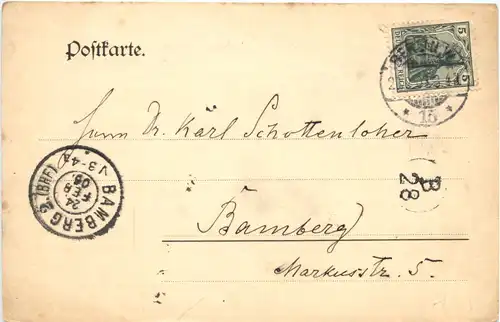 Postkarte.
5
5
BERLIN W.
* 15 *
Herrn Dr. Karl Schottenloher
BAMBERG 2. (BHF)
24
FEB
05.
V 3-4
B
28
Bamberg
Markusstr. 5.